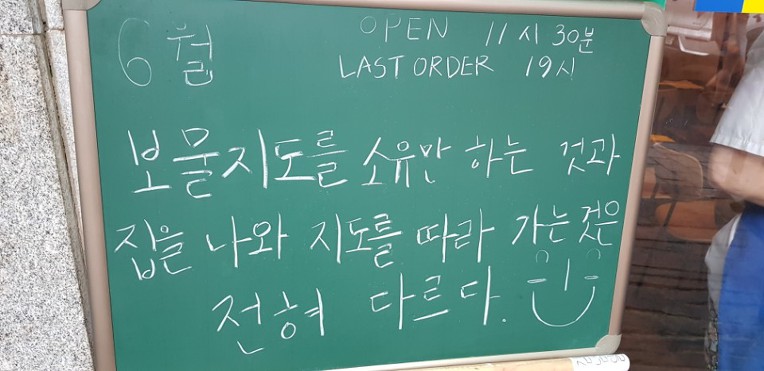 6월
OPEN 11시 30분
LAST ORDER 19시
보물지도를 소유만 하는 것과
집을 나와 지도를 따라 가는것은
전혀 다르다.